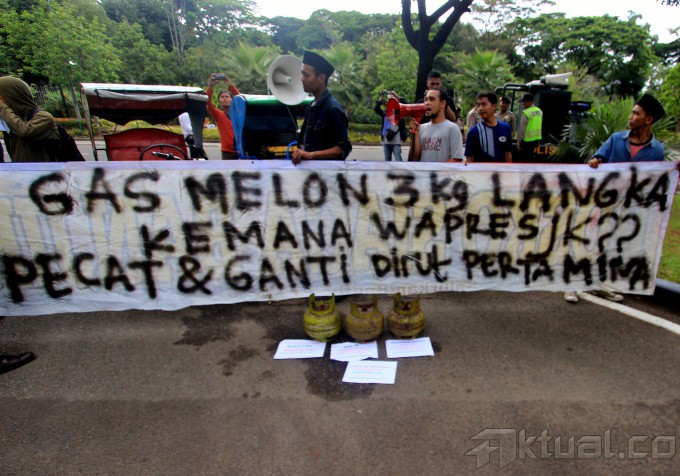 GAS MELON 3 Kg LANGKA
KEMANA WAPRES JK??
PECAT & GANTI DIRUT PERTAMINA
Aktual.com